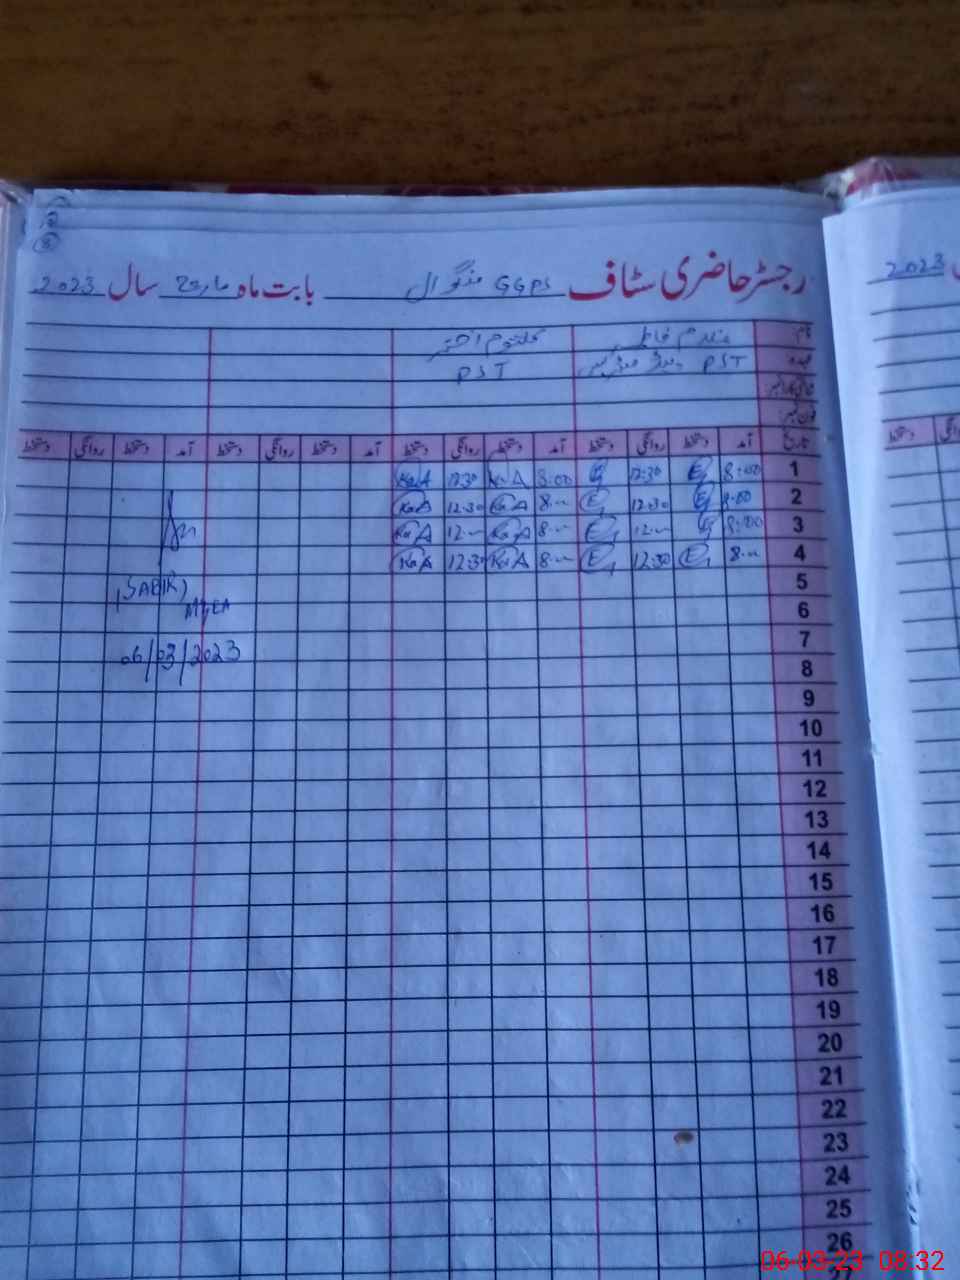 رجسٹر حاضری سٹاف GGPS منگوال بابت ماہ مارچ سال 2023
2023
نام کلثوم اختر
عہدہ PST PST
فون نمبر
تاریخ آمد دستخط روانگی دستخط آمد دستخط روانگی دستخط آمد دستخط روانگی دستخط آمد دستخط روانگی دستخط
1 8:00 12:30 8:00 KaA 12:30 KaA
2 8:00 12:30 8:00 KaA 12:30 KaA
3 8:00 12:00 8:00 KaA 12:00 KaA
4 8:00 12:30 8:00 KaA 12:30 KaA
5 (SABIR)
6 MEA
7
8 06/03/2023
9
10
11
12
13
14
15
16
17
18
19
20
21
22
23
24
25
26
06-03-23 08:32